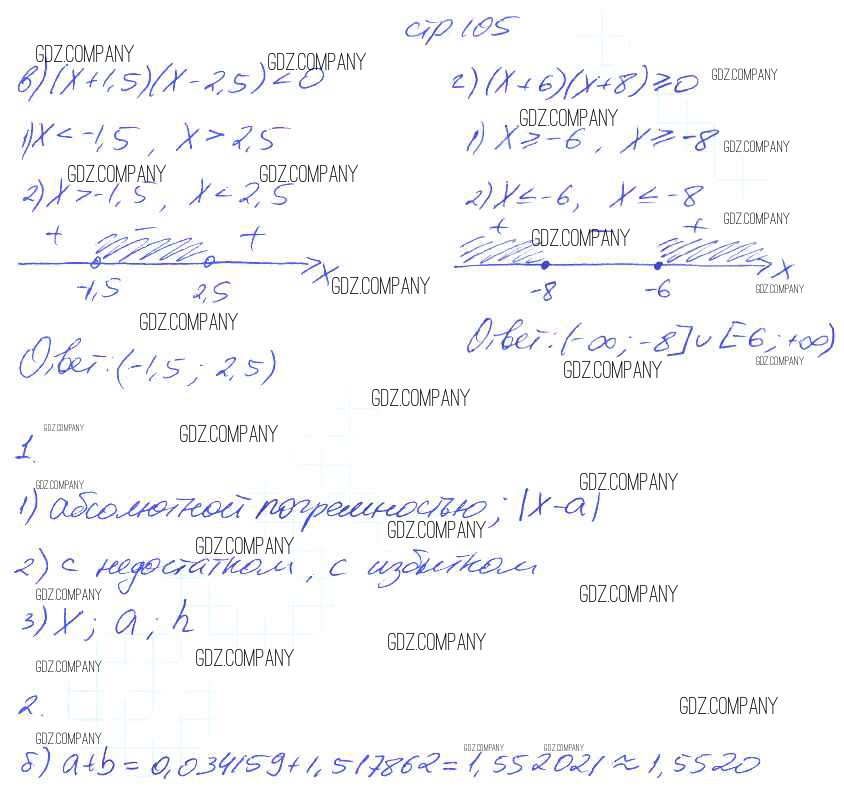 стр 105
GDZ.COMPANY GDZ.COMPANY
в) (x+1,5)(x-2,5)<0
1) x<-1,5, x>2,5
GDZ.COMPANY GDZ.COMPANY
2) x>-1,5, x<2,5
+ - +
x
GDZ.COMPANY
-1,5 2,5
GDZ.COMPANY
Ответ: (-1,5; 2,5)
г) (x+6)(x+8)≥0 GDZ.COMPANY
GDZ.COMPANY
1) x≥-6, x≥-8 GDZ.COMPANY
2) x≤-6, x≤-8
GDZ.COMPANY
+ - +
GDZ.COMPANY
x
-8 -6 GDZ.COMPANY
Ответ: (-∞; -8]∪[-6; +∞)
GDZ.COMPANY GDZ.COMPANY
GDZ.COMPANY
GDZ.COMPANY GDZ.COMPANY
1.
GDZ.COMPANY GDZ.COMPANY
1) абсолютной погрешностью; |x-a|
GDZ.COMPANY GDZ.COMPANY
2) с недостатком, с избытком
GDZ.COMPANY GDZ.COMPANY
3) x; a; h
GDZ.COMPANY GDZ.COMPANY GDZ.COMPANY
2. GDZ.COMPANY
GDZ.COMPANY GDZ.COMPANY GDZ.COMPANY
б) a+b=0,034159+1,517862=1,552021≈1,5520